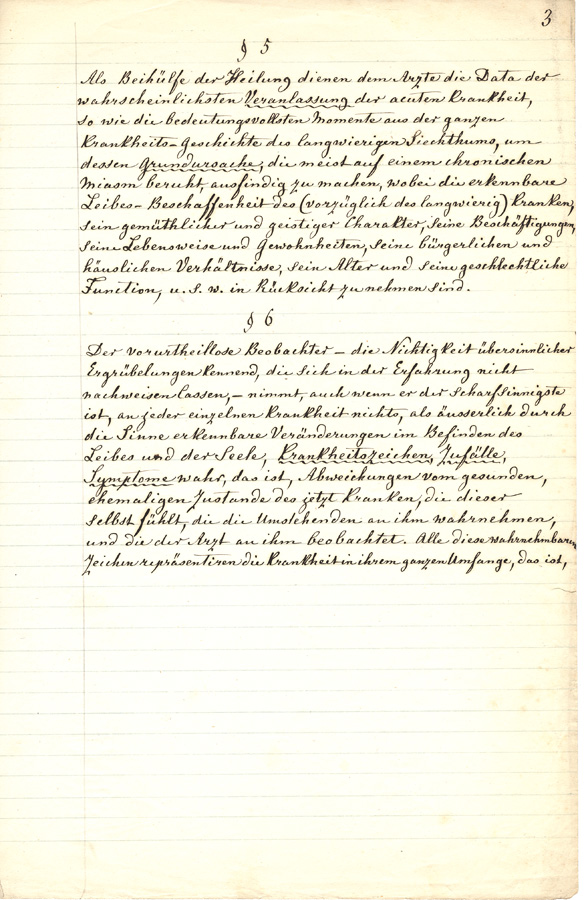 3
§ 5
Als Beihülfe der Heilung dienen dem Arzte die Data der
wahrscheinlichsten Veranlassung der acuten Krankheit,
so wie die bedeutungsvollsten Momente aus der ganzen
Krankheits-Geschichte des langwierigen Siechthums, um
dessen Grundursache, die meist auf einem chronischen
Miasm beruht, ausfindig zu machen, wobei die erkennbare
Leibes-Beschaffenheit des (vorzüglich des langwierig) Kranken,
sein gemüthlicher und geistiger Charakter, seine Beschäftigungen,
seine Lebensweise und Gewohnheiten, seine bürgerlichen und
häuslichen Verhältnisse, sein Alter und seine geschlechtliche
Function, u. s. w. in Rücksicht zu nehmen sind.
§ 6
Der vorurtheillose Beobachter – die Nichtigkeit übersinnlicher
Ergrübelungen kennend, die sich in der Erfahrung nicht
nachweisen lassen, – nimmt, auch wenn er der Scharfsinnigste
ist, an jeder einzelnen Krankheit nichts, als äusserlich durch
die Sinne erkennbare Veränderungen im Befinden des
Leibes und der Seele, Krankheitszeichen, Zufälle,
Symptome wahr, das ist, Abweichungen vom gesunden,
ehemaligen Zustande des jetzt Kranken, die dieser
selbst fühlt, die die Umstehenden an ihm wahrnehmen,
und die der Arzt an ihm beobachtet. Alle diese wahrnehmbaren
Zeichen repräsentiren die Krankheit in ihrem ganzen Umfange, das ist,